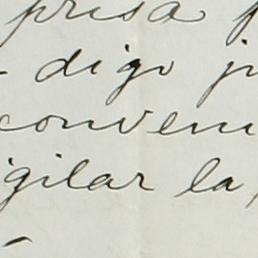 prisa p
- digo ju
conveni
igilar la
-